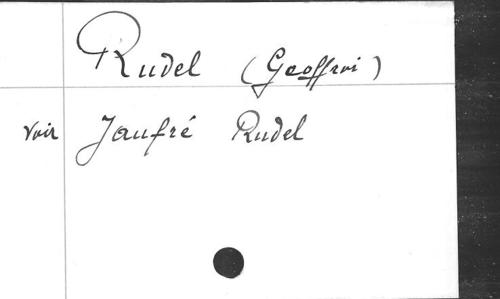 Rudel (Geoffroi)
voir Jaufré Rudel